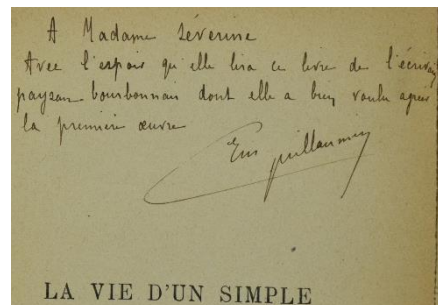 A Madame Séverine
Avec l'espoir qu'elle lira ce livre de l'écrivain
paysan bourbonnais dont elle a bien voulu agréer
la première œuvre
Em Guillaumin
LA VIE D'UN SIMPLE